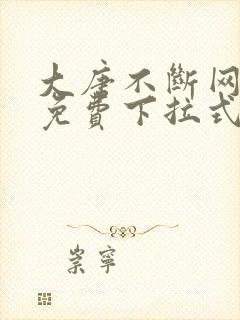 大唐不斷网
免費下拉式
崇寧